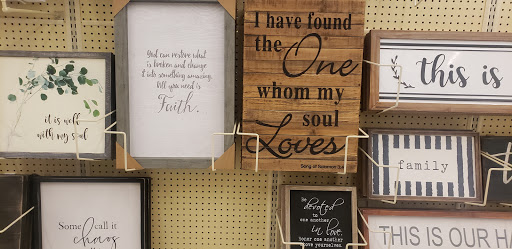 it is well
with my soul
God can restore what
is broken and change
it into something amazing.
All you need is
Faith.
I have found
the One
whom my
soul
Loves
Song of Solomon
this is
family
Some call it
chaos
Be
devoted
to
one another
in love.
honor one another
above yourselves.
THIS IS OUR H